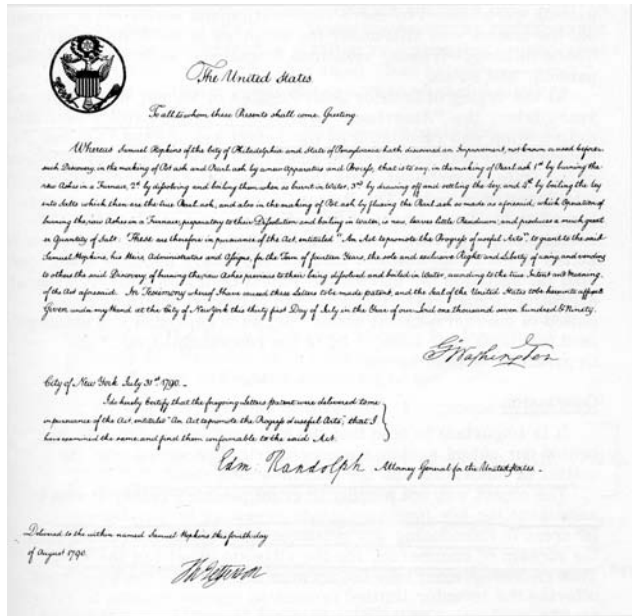 The United States.
To all to whom these Presents shall come, Greeting.
Whereas Samuel Hopkins of the City of Philadelphia and State of Pensylvania hath discovered an Improvement, not known or used before
such Discovery, in the making of Pot ash and Pearl ash by a new Apparatus and Process, that is to say, in the making of Pearl ash 1st by burning the
raw Ashes in a Furnace, 2d by dissolving and boiling them when so burnt in Water, 3rd by drawing off and settling the ley, and 4th by boiling the ley
into Salts which then are the true Pearl ash, and also in the making of Pot ash by fluxing the Pearl ash so made as aforesaid, which Operation of
burning the raw Ashes in a Furnace, preparatory to their Dissolution and boiling in water, is new, leaves little Residuum; and produces a much greater
Quantity of Salt: These are therefore in pursuance of the Act, entituled "An Act to promote the Progress of useful Arts", to grant to the said
Samuel Hopkins, his Heirs, Administrators and Assigns, for the Term of fourteen Years, the sole and exclusive Right and Liberty of using and vending
to others the said Discovery of burning the raw Ashes previous to their being dissolved and boiled in Water, according to the true Intent and Meaning
of the Act aforesaid. In Testimony whereof I have caused these Letters to be made patent, and the Seal of the United States to be hereunto affixed
Given under my Hand at the City of New York this thirty first Day of July in the Year of our Lord one thousand seven hundred & Ninety.
G. Washington
City of New York July 31st 1790. -
I do hereby Certify that the foregoing Letters patent were delivered to me
in pursuance of the Act, entituled "An Act to promote the Progress of useful Arts", that I
have examined the same, and find them conformable to the said Act.
Edm: Randolph Attorney General for the United States. -
Delivered to the within named Samuel Hopkins this fourth day
of August 1790.
Th: Jefferson